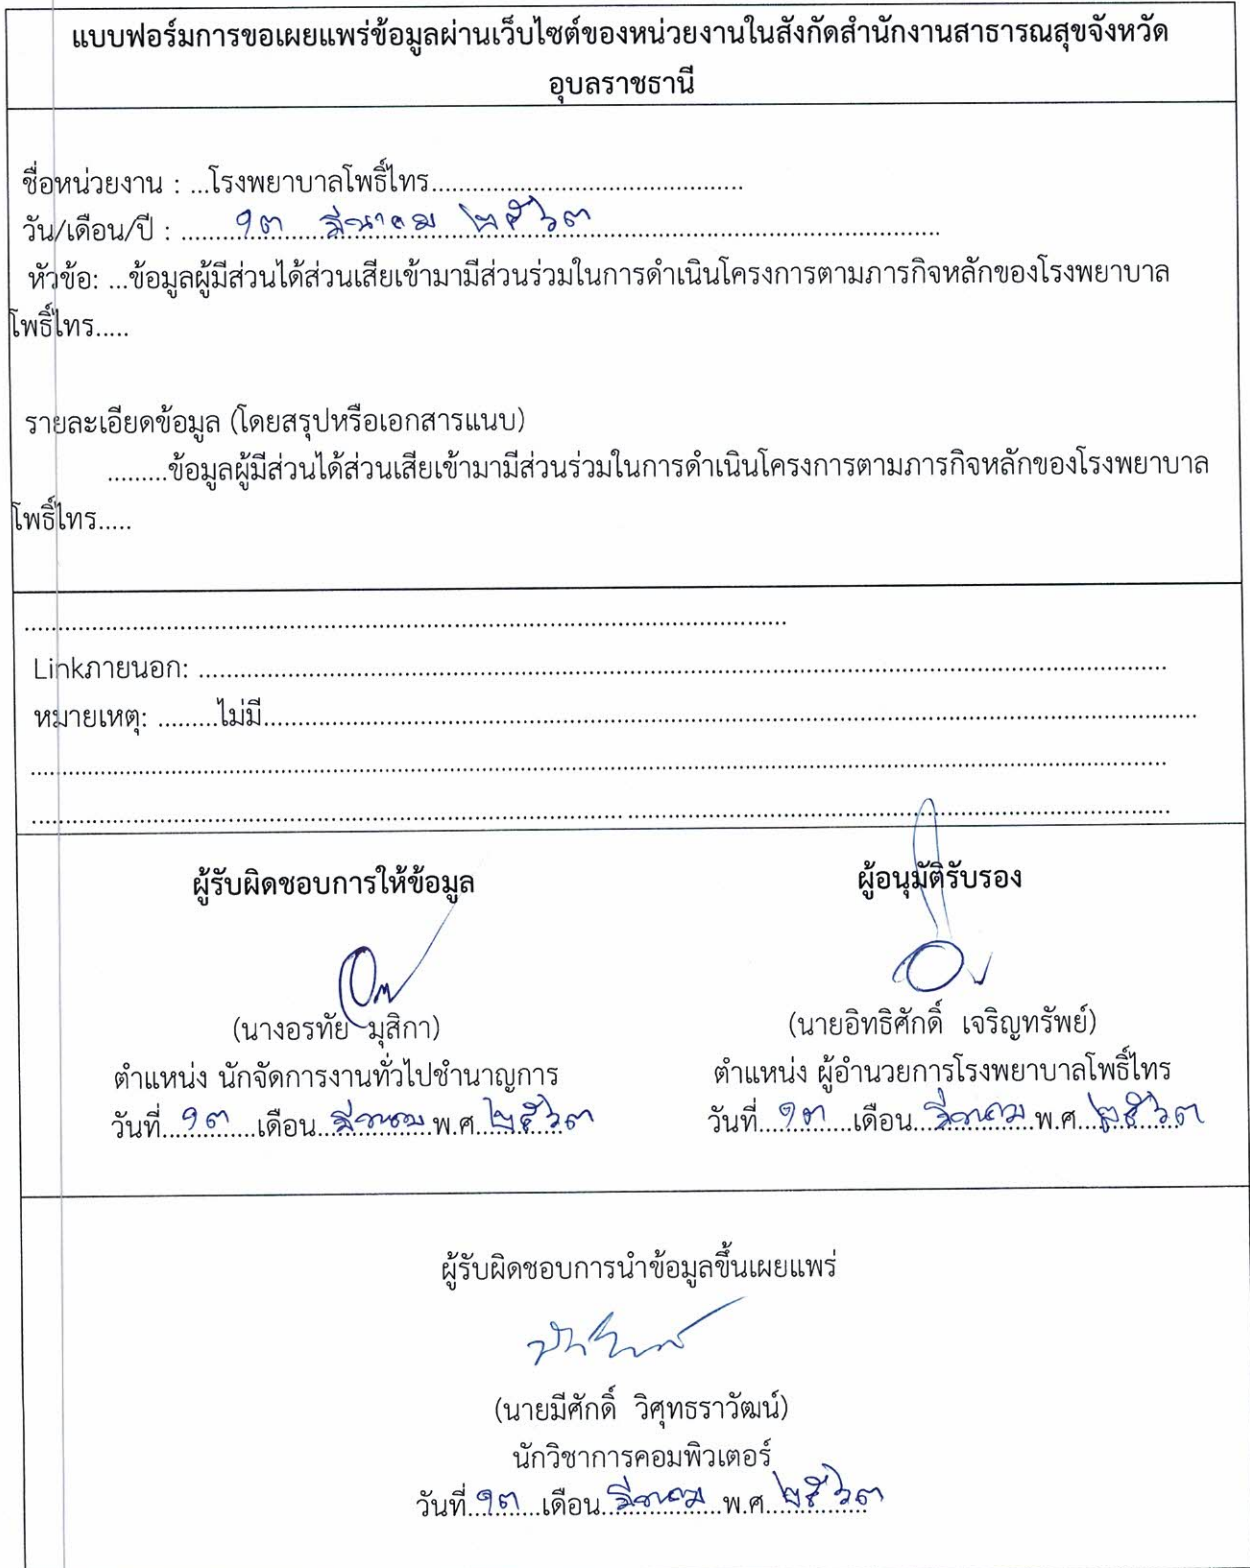 แบบฟอร์มการขอเผยแพร่ข้อมูลผ่านเว็บไซต์ของหน่วยงานในสังกัดสำนักงานสาธารณสุขจังหวัด
อุบลราชธานี
ชื่อหน่วยงาน : ...โรงพยาบาลโพธิ์ไทร..............................................
วัน/เดือน/ปี : ........๑๓ มีนาคม ๒๕๖๓........
หัวข้อ: ...ข้อมูลผู้มีส่วนได้ส่วนเสียเข้ามามีส่วนร่วมในการดำเนินโครงการตามภารกิจหลักของโรงพยาบาล
โพธิ์ไทร.....
รายละเอียดข้อมูล (โดยสรุปหรือเอกสารแนบ)
.........ข้อมูลผู้มีส่วนได้ส่วนเสียเข้ามามีส่วนร่วมในการดำเนินโครงการตามภารกิจหลักของโรงพยาบาล
โพธิ์ไทร.....
Linkภายนอก: ........................................
หมายเหตุ: .........ไม่มี........................................
ผู้รับผิดชอบการให้ข้อมูล ผู้อนุมัติรับรอง
(นางอรทัย มุสิกา) (นายอิทธิศักดิ์ เจริญทรัพย์)
ตำแหน่ง นักจัดการงานทั่วไปชำนาญการ ตำแหน่ง ผู้อำนวยการโรงพยาบาลโพธิ์ไทร
วันที่..๑๓...เดือน..มีนาคม..พ.ศ..๒๕๖๓ วันที่..๑๓...เดือน..มีนาคม..พ.ศ..๒๕๖๓
ผู้รับผิดชอบการนำข้อมูลขึ้นเผยแพร่
(นายมีศักดิ์ วิศุทธราวัฒน์)
นักวิชาการคอมพิวเตอร์
วันที่.๑๓...เดือน..มีนาคม..พ.ศ..๒๕๖๓